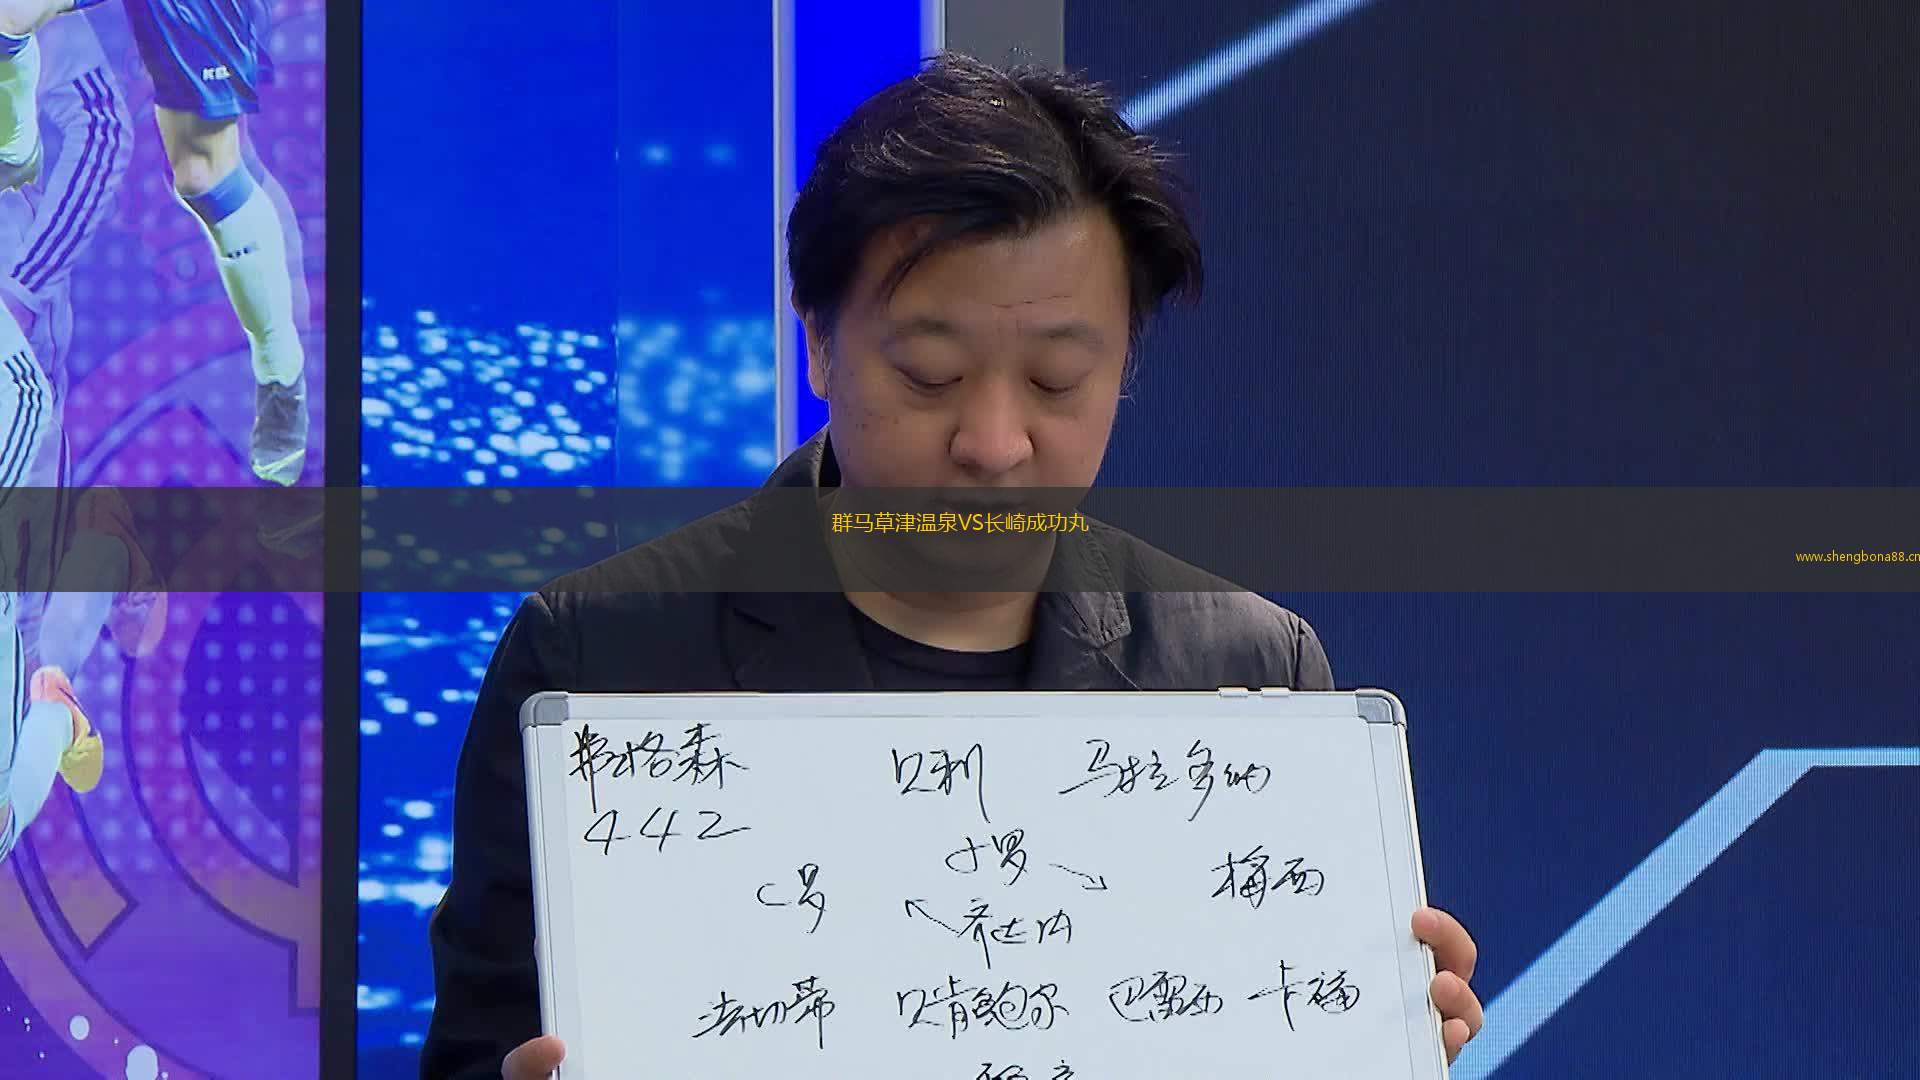 KEL
群马草津温泉VS长崎成功丸
www.shengbona88.cn
弗格森 贝利 马拉多纳
442
小罗
C罗 梅西
齐达内
法切蒂 贝肯鲍尔 巴雷西 卡福